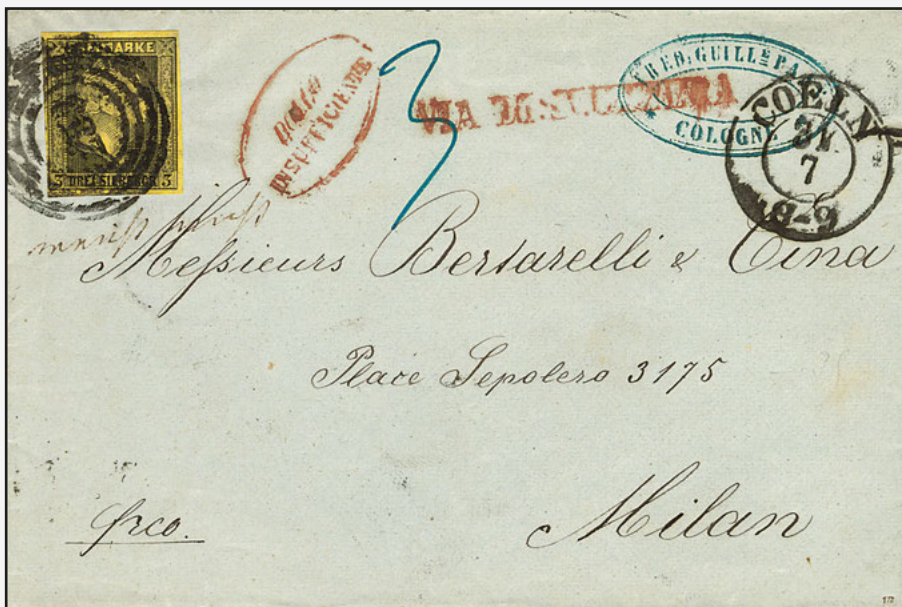 FREIMARKE
3 DREI SILBERGR. 3
BOLLO
INSUFFICIENTE
3
VIA DI SVIZZERA
FRED: GUILLE PA
* COLOGNE
COELN
31
7
8-9
Messieurs Bertarelli & Cina
Place Sepolero 3175
frco.
Milan